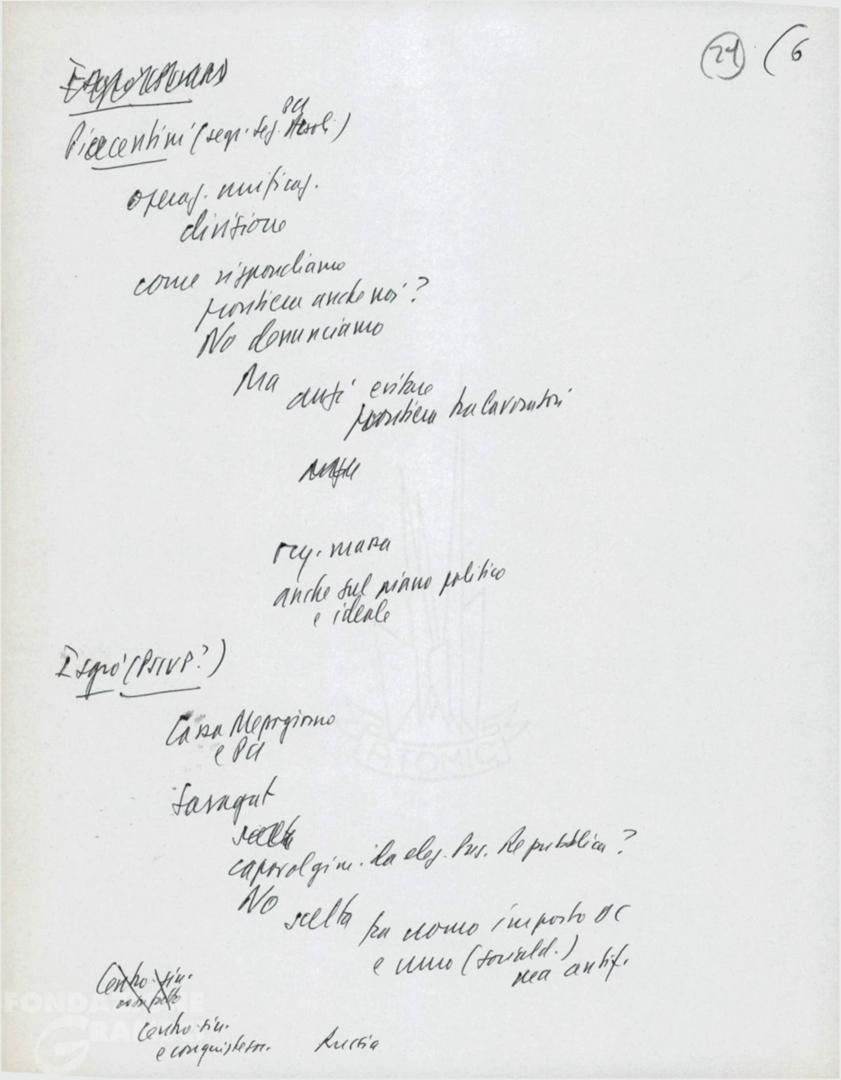 24 (6
Piacentini (segr. sez. PCI Ascoli)
operaz. unificaz.
divisione
come rispondiamo
frontiera anche noi?
No denunciamo
Ma anzi evitare
frontiera tra lavoratori
org. massa
anche sul piano politico
e ideale
Isgrò (PSIUP?)
Cassa Mezzogiorno
e PCI
Saragat
scelta
capovolgim. da elez. Pres. Repubblica?
No
scelta tra uomo imposto DC
e uomo (sociald.)
ma antif.
Centro-sin.
Centro-sin.
e conquiste
Russia
ATOMIC
FONDAZIONE
GRAMSCI